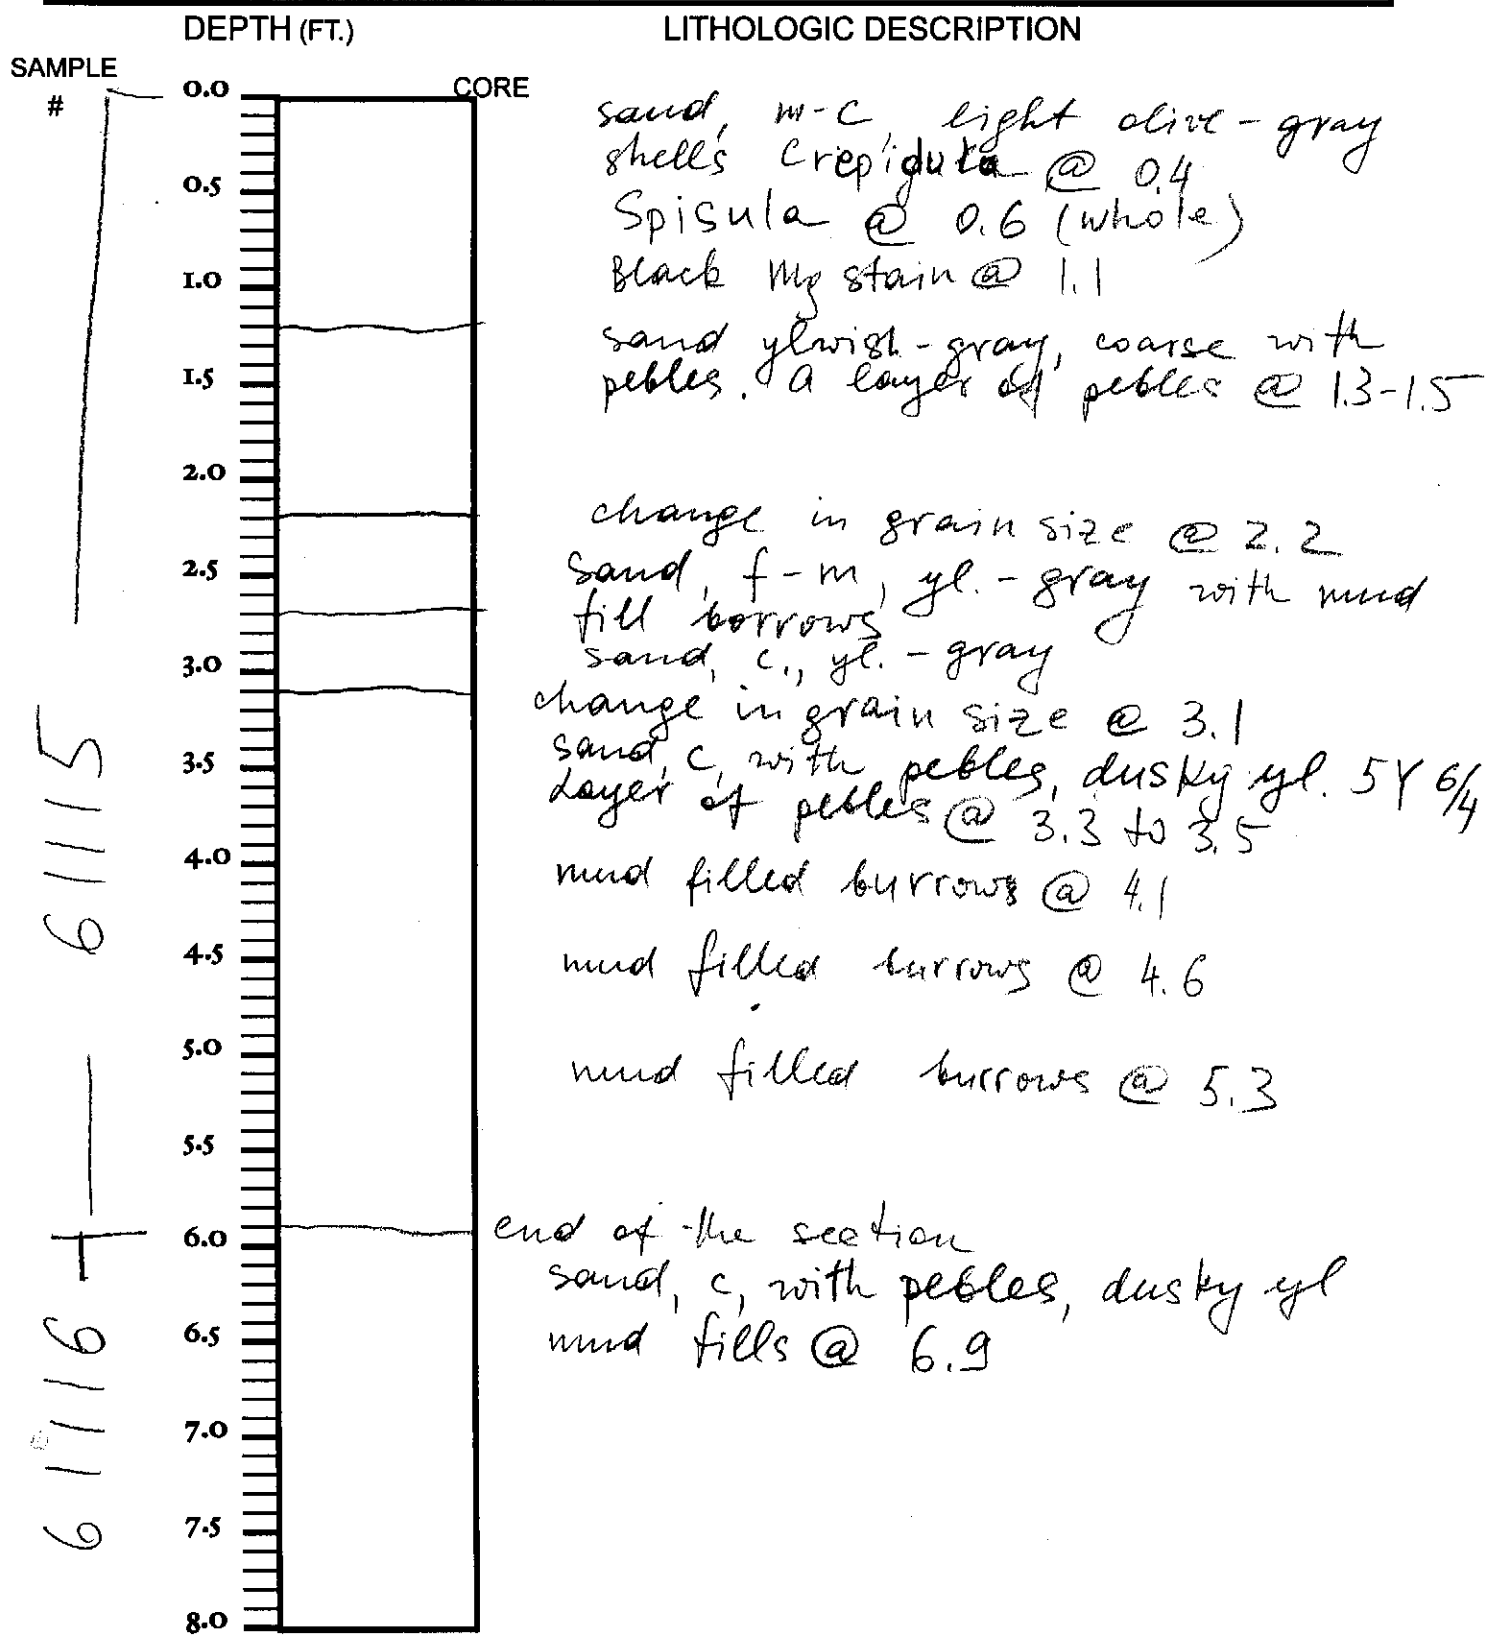 DEPTH (FT.) LITHOLOGIC DESCRIPTION
SAMPLE
#
CORE
0.0
0.5
1.0
1.5
2.0
2.5
3.0
3.5
4.0
4.5
5.0
5.5
6.0
6.5
7.0
7.5
8.0
61115
61116
sand, m-c, light olive-gray
shells Crepidula @ 0.4
Spisula @ 0.6 (whole)
Black Mg stain @ 1.1
sand ylwish-gray, coarse with
pebles. a layer of pebles @ 1.3-1.5
change in grain size @ 2.2
Sand, f-m, yl.-gray with mud
fill borrows
sand, c., yl.-gray
change in grain size @ 3.1
sand, c, with pebles, dusky yl. 5Y 6/4
Layer of pebles @ 3.3 to 3.5
mud filled burrows @ 4.1
mud filled burrows @ 4.6
mud filled burrows @ 5.3
end of the section
sand, c, with pebles, dusky yl
mud fills @ 6.9